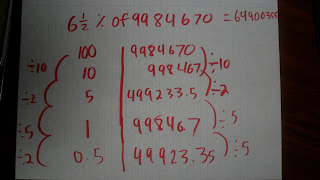 6 1/2 % of 9984670 = 64900355
100 9984670
÷10 ÷10
10 998467
÷2 ÷2
5 499233.5
÷5 ÷5
1 99846.7
÷2 ÷5
0.5 49923.35